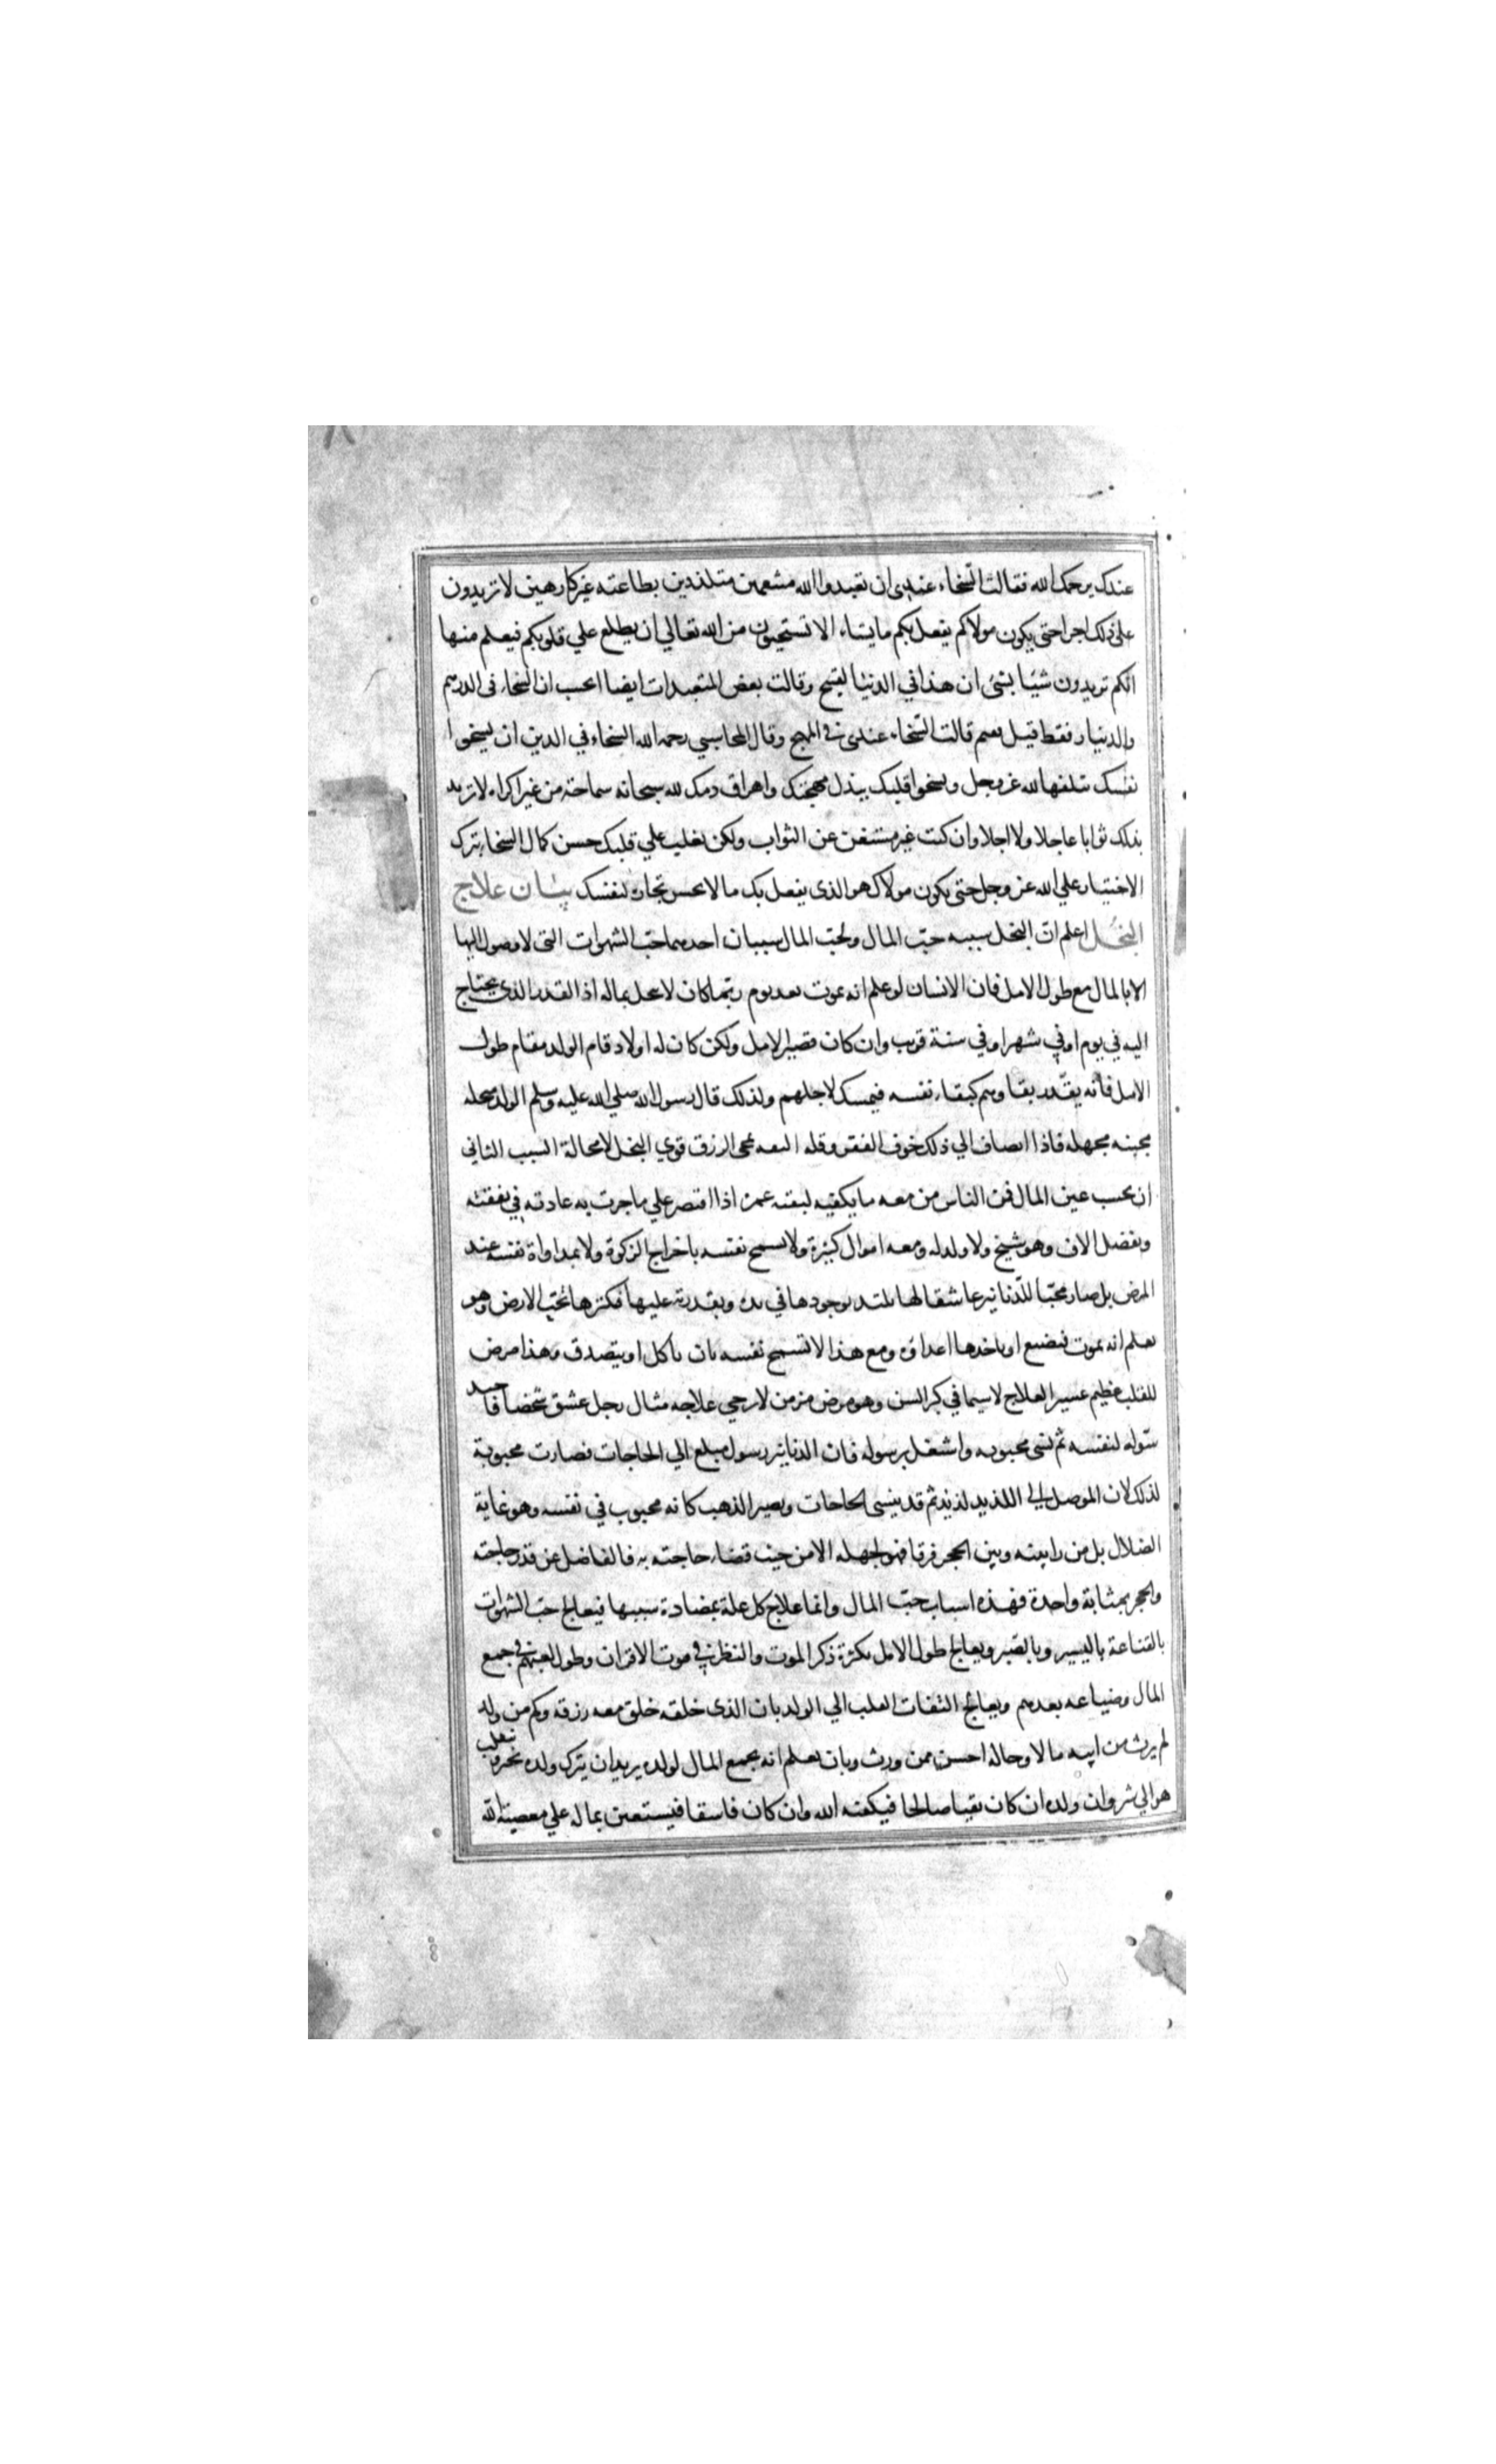 عندك يرحمك الله فقالت السّخاء عندي ان تعبدوا الله متنعمين متلذذين بطاعته غير كارهين لا تريدون
على ذلك اجرا حتى يكون مولاكم يفعل بكم ما يشاء الا تستحيون من الله تعالي ان يطلع علي قلوبكم فيعلم منها
انكم تريدون شيئا بشئ ان هذا في الدنيا لقبيح وقالت بعض المتعبدات ايضا اتحسب ان السخاء في الدرهم
والدنيار فقط قيل نعم قالت السّخاء عندي في المهج وقال المحاسبي رحمه الله السخاء في الدين ان يسخوا
نفسك تتلفها لله عز وجل ويسخوا قلبك ببذل مهجتك واهراق دمك لله سبحانه سماحة من غير اكراه لا تريد
بذلك ثوابا عاجلا ولا اجلا وان كنت غير مستغن عن الثواب ولكن يغلب علي قلبك حسن كمال السخاء بترك
الاختيار علي الله عز وجل حتى يكون مولاك هو الذي يفعل بك ما لا تحسن تختاره لنفسك بيان علاج
البخل اعلم ان البخل سببه حبّ المال ولحبّ المال سببان احدهما حبّ الشهوات التي لا وصول اليها
الا بالمال مع طول الامل فان الانسان لو علم انه يموت بعد يوم ربّما كان لا يبخل بماله اذ القدر الذي يحتاج
اليه في يوم او في شهر او في سنة قريب وان كان قصير الامل ولكن كان له اولاد قام الولد مقام طول
الامل فانه يقدّر بقاوهم كبقاء نفسه فيمسك لاجلهم ولذلك قال رسول الله صلي الله عليه وسلم الولد مبخله
مجبنه مجهله فاذا انضاف الي ذلك خوف الفقر وقله الثقه بمجى الرزق قوي البخل لا محالة السبب الثاني
ان يحب عين المال فمن الناس من معه ما يكفيه لبقيه عمره اذا اقتصر علي ما جرت به عادته في نفقته
ويفضل الاف وهو شيخ ولا ولد له ومعه اموال كثيرة ولا تسمح نفسه باخراج الزكوة ولا بمداواة نفسه عند
المرض بل صار محبّا للدّنانير عاشقا لها يلتذ بوجودها في يده وبقدرته عليها فكنزها تحت الارض وهو
يعلم انه يموت فيضيع او ياخذها اعداؤه ومع هذا لا تسمح نفسه بان ياكل او يتصدق وهذا مرض
للقلب عظيم عسير العلاج لا سيما في كبر السن وهو مرض مزمن لا يرجي علاجه مثال رجل عشق شخصا فاحب
رسوله لنفسه ثم نسى محبوبه واشتغل برسوله فان الدنانير رسول مبلغ الي الحاجات فصارت محبوبة
لذلك لان الموصل الي اللذيذ لذيذ ثم قد ينسى الحاجات ويصير الذهب كانه محبوب في نفسه وهو غاية
الضلال بل من راي بينه وبين الحجر فرقا فهو لجهله الا من حيث قضاء حاجته به فالفاضل عن قدر حاجته
والحجر بمثابة واحدة فهذه اسباب حبّ المال وانما علاج كل علة بمضادة سببها فيعالج حبّ الشهوات
بالقناعة باليسير وبالصّبر ويعالج طول الامل بكثرة ذكر الموت والنظر في موت الاقران وطول تعبهم في جمع
المال وضياعه بعدهم ويعالج التفات القلب الي الولد بان الذي خلقه خلق معه رزقه وكم من ولد
لم يرث من ابيه مالا وحاله احسن ممن ورث وبان يعلم انه بجمع المال لولده يريد ان يترك ولده بخير وينقلب
هو الي شر وان ولده ان كان تقيا صالحا فيكفيه الله وان كان فاسقا فيستعين بماله علي معصية الله